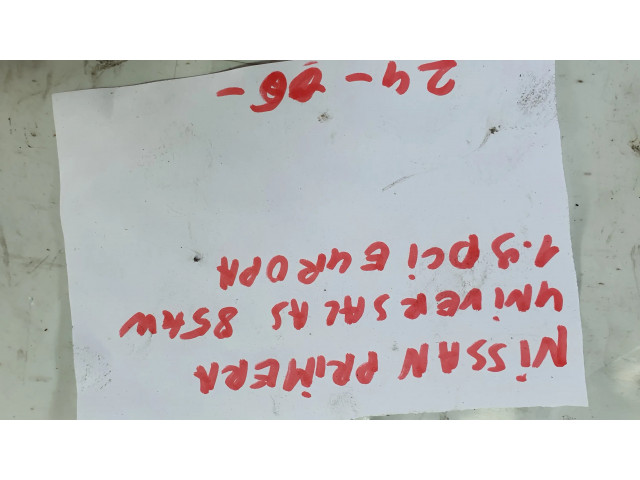 NISSAN PRIMERA
UNIVERSALAS 85kw
1.9 DCI EUROPA
24-06-